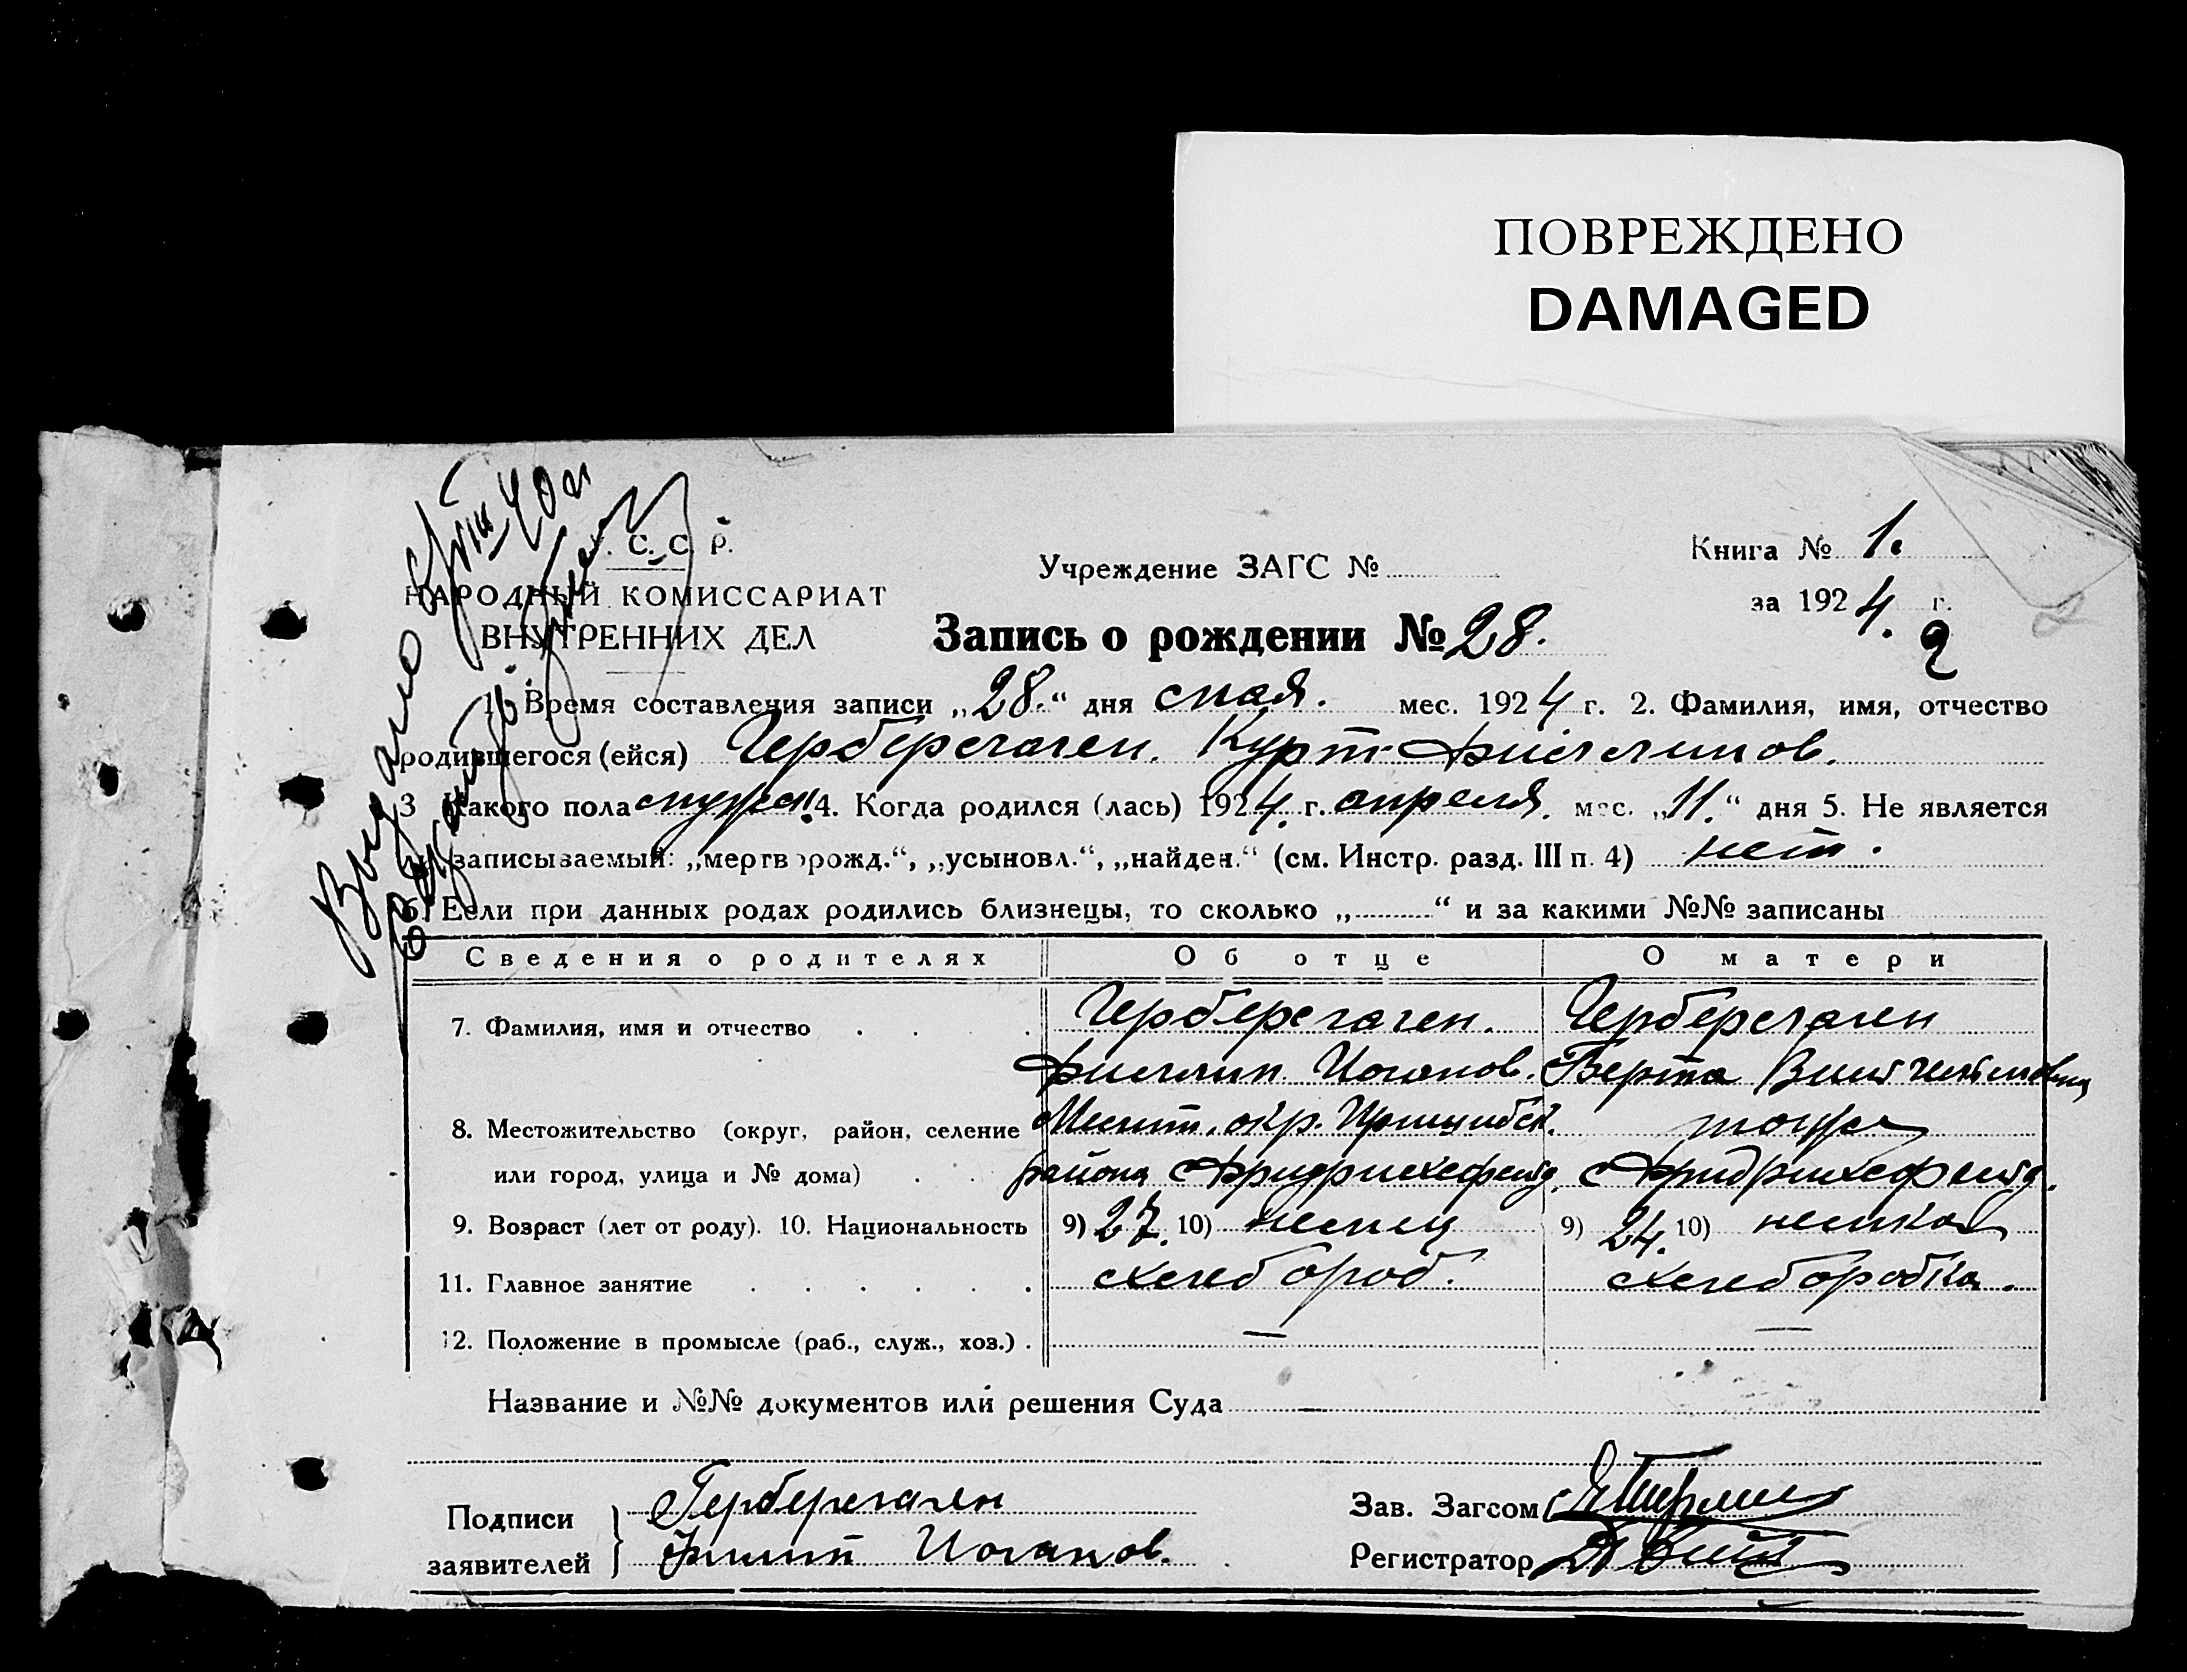 ПОВРЕЖДЕНО
DAMAGED
С. С. Р.
НАРОДНЫЙ КОМИССАРИАТ
ВНУТРЕННИХ ДЕЛ
Учреждение ЗАГС №
Книга № 1.
за 1924. г.
2
Запись о рождении № 28.
1. Время составления записи „28.“ дня мая. мес. 1924 г. 2. Фамилия, имя, отчество
родившегося (ейся) Герберсгаген. Курт Филлипов.
3 Какого пола муж. 4. Когда родился (лась) 1924. г. апреля. мес. „11.“ дня 5. Не является
записываемый: „мертворожд.“, „усыновл.“, „найден.“ (см. Инстр. разд. III п. 4) нет.
6. Если при данных родах родились близнецы, то сколько „ “ и за какими №№ записаны
Сведения о родителях Об отце О матери
7. Фамилия, имя и отчество Герберсгаген. Герберсгаген
Филлип Иоганов. Берта Вильгельмовна
8. Местожительство (округ, район, селение Мелит. окр. Пришибск. тоже
или город, улица и № дома) района с Фридрихсфельд. с Фридрихсфельд.
9. Возраст (лет от роду). 10. Национальность 9) 27. 10) немец 9) 24. 10) немка
11. Главное занятие хлебороб. хлеборобка.
12. Положение в промысле (раб., служ., хоз.) . — —
Название и №№ документов или решения Суда —
Подписи заявителей Герберсгаген
Филип Иоганов.
Зав. Загсом
Регистратор
Выдано